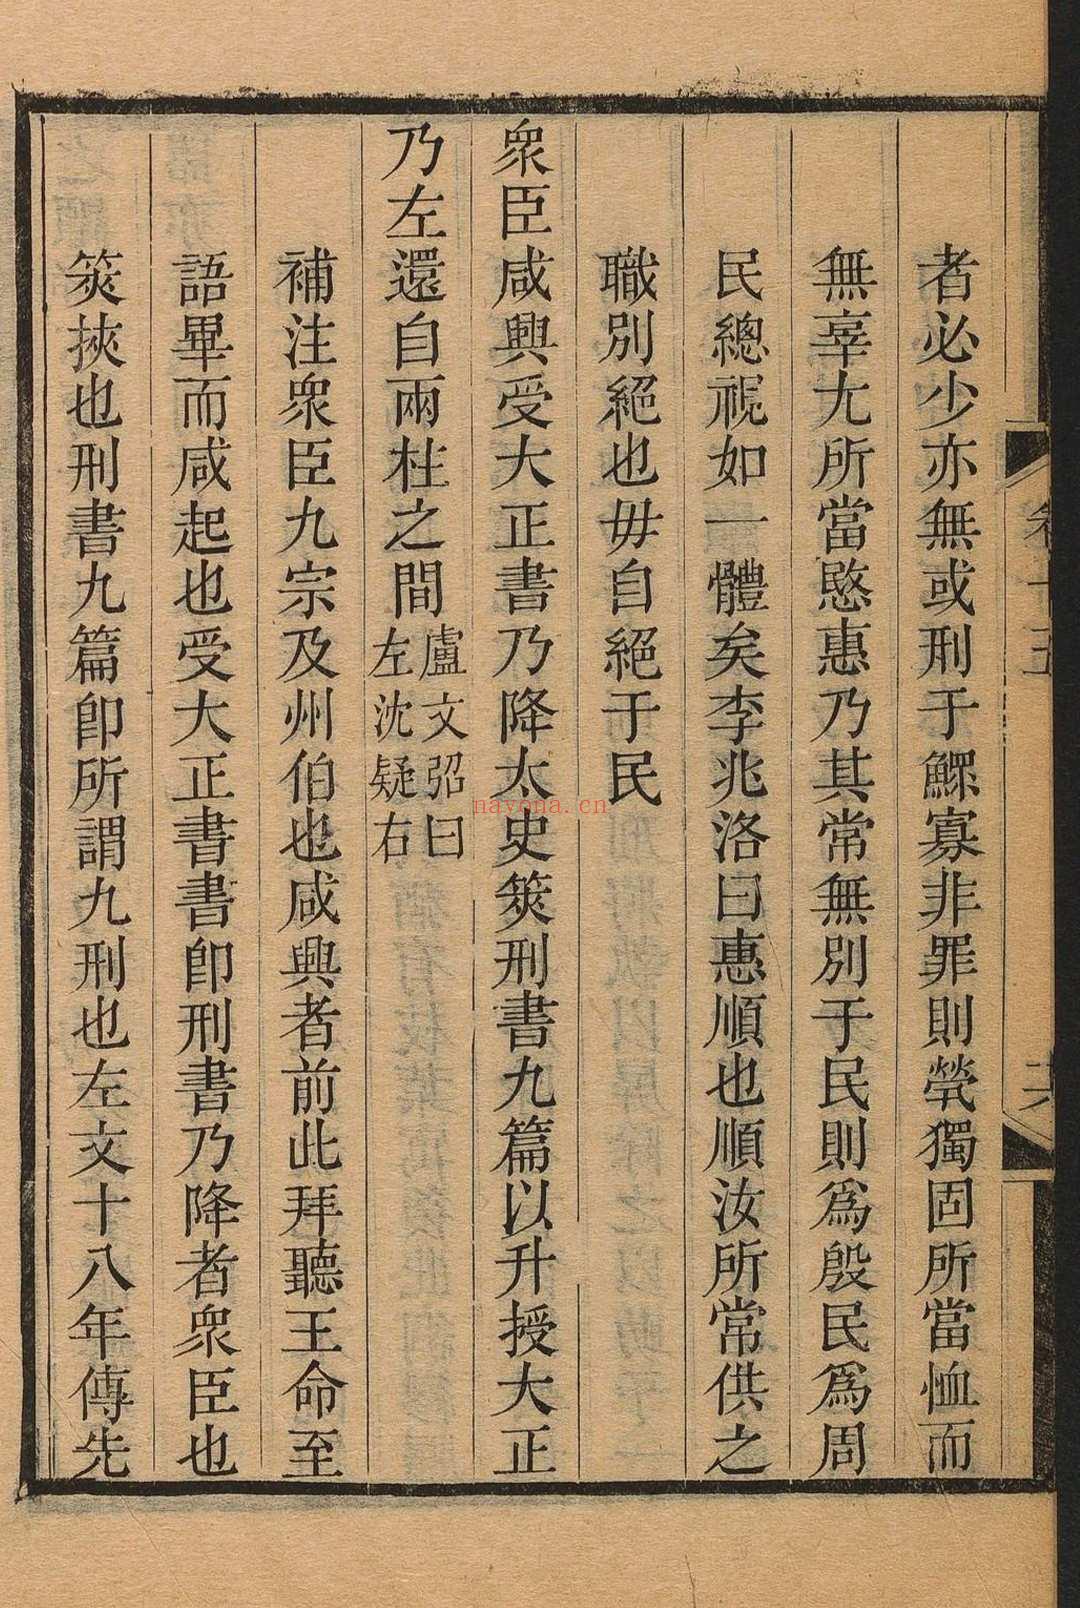 者必少亦無或刑于鰥寡非罪則煢獨固所當恤而
無辜尤所當愍惠乃其常無別于民則爲殷民爲周
民總視如一體矣李兆洛曰惠順也順汝所常供之
職別絕也毋自絕于民
衆臣咸興受大正書乃降太史筴刑書九篇以升授大正
乃左還自兩柱之間盧文弨曰
左沈疑右
補注衆臣九宗及州伯也咸興者前此拜聽王命至
語畢而咸起也受大正書書卽刑書乃降者衆臣也
筴挾也刑書九篇卽所謂九刑也左文十八年傳先
navona.cn